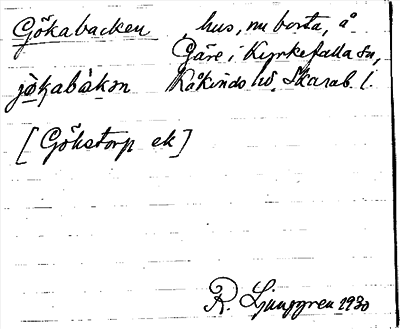 Gökabacken, hus, nu borta, å
Gäre i Kyrkefalla sn,
jökabakən Kåkinds hd, Skarab. l.
[Gökstorp ek]
R. Ljunggren 1930